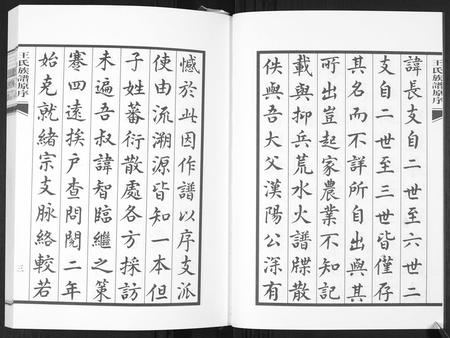 王氏族譜原序
諱長支自二世至六世二
支自二世至三世皆僅存
其名而不詳所自出與其
所出豈起家農業不知記
載與抑兵荒水火譜牒散
佚與吾大父漢陽公深有
憾於此因作譜以序支派
使由流溯源皆知一本但
子姓蕃衍散處各方採訪
未遍吾叔諱智臨繼之策
蹇四遠挨戶查問閱二年
始克就緒宗支脉絡較若
王氏族譜原序
三